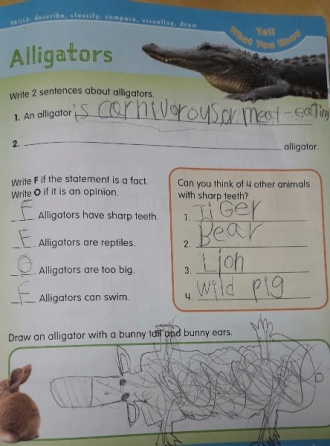 skills: describe, classify, compare, visualize, draw
Tell
What You Know
Alligators
Write 2 sentences about alligators.
1. An alligator is carnivorous,or meat-eating
2. alligator.
Write F if the statement is a fact.
Write O if it is an opinion.
F Alligators have sharp teeth.
F Alligators are reptiles.
O Alligators are too big.
F Alligators can swim.
Can you think of 4 other animals
with sharp teeth?
1. Tiger
2. Bear
3. Lion
4. Wild pig
Draw an alligator with a bunny tail and bunny ears.